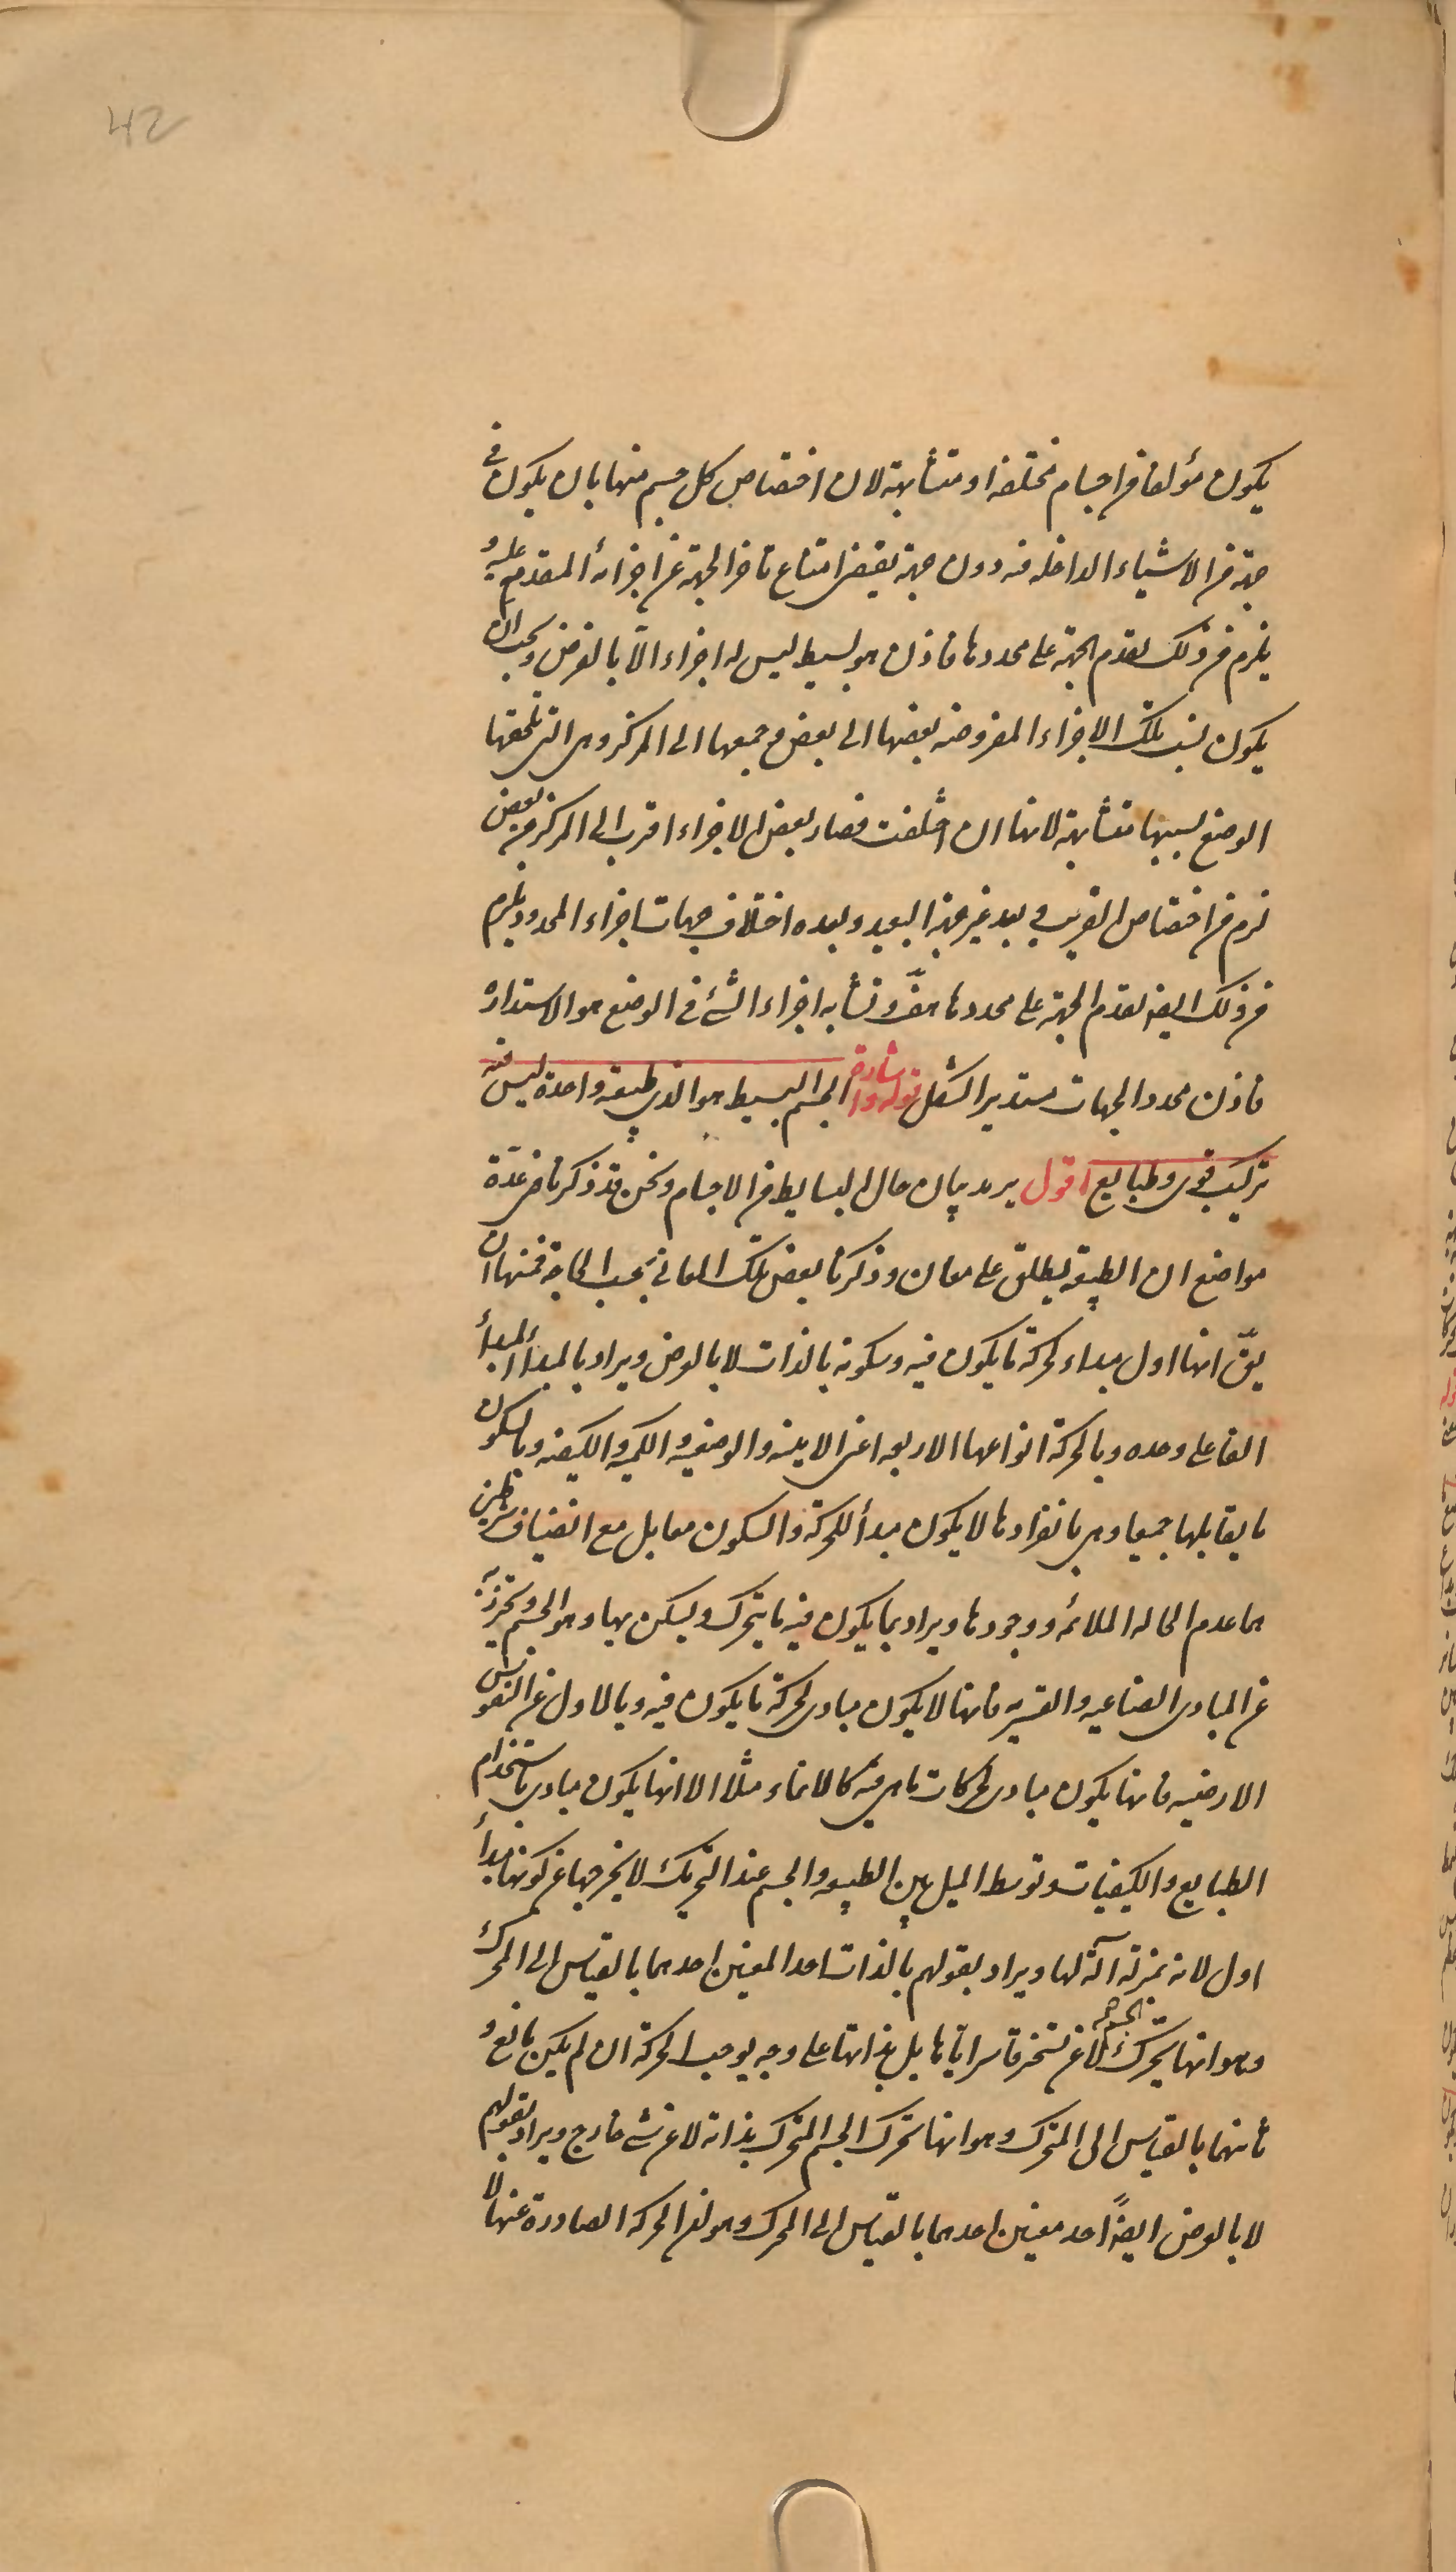 42
يكون مؤلفا من اجسام مختلفة او متشابهة لان اختصاص كل جسم منها بان يكون في
جهة من الاشياء الداخلة فيه دون جهة يقتضى امتناع تاخر الجهة عن اجزائه المتقدمة عليه و
يلزم من ذلك تقدم الجهة على محددها فاذن هو بسيط ليس له اجزاء الا بالفرض ويجب ان
يكون نسب تلك الاجزاء المفروضة بعضها الى بعض وجميعها الى المركز وهى التى تلحقها
الوضع بسببها متشابهة لانها ان اختلفت فصار بعض الاجزاء اقرب الى المركز من بعض
لزم من اختصاص القريب فى بعد غير جهة البعيد وبعده اختلاف جهات اجزاء المحدد ويلزم
من ذلك ايضا تقدم الجهة على محددها هف وتشابه اجزاء الشئ فى الوضع هو الاستداره
فاذن محدد الجهات مستدير الشكل قوله اشارة الجسم البسيط هو الذى طبيعته واحدة ليس فيه
تركيب قوى وطبايع اقول يريد بيان حال البسايط من الاجسام ونحن قد ذكرنا فى عدّة
مواضع ان الطبيعة يطلق على معان وذكرنا بعض تلك المعانى بحسب الحاجة فمنها ان
يقّ انها اول مبداء لحركة ما يكون فيه وسكونه بالذات لا بالعرض ويراد بالمبدأ المبدأ
الفاعلى وحده وبالحركة انواعها الاربعه اعنى الاينيه والوضعيه والكميه والكيفيه وبالسكون
ما يقابلها جميعا وهى بانفرادها لا يكون مبدأ للحركة والسكون معا بل مع انضياف شرطين
هما عدم الحاله الملائمه ووجودها ويراد بما يكون فيه ما يتحرك ويسكن بها وهو الجسم ويحترز به
عن المبادى الصناعيه والقسريه فانها لا يكون مبادى لحركة ما يكون فيه وبالاول عن النفوس
الارضيه فانها يكون مبادى لحركات ما هى فيه كالانماء مثلا الا انها يكون مبادى باستخدام
الطبايع والكيفيات وتوسط الميل بين الطبيعه والجسم عند التحريك لا يخرجها عن كونها مبدأ
اول لانه بمنزلة آلة لها ويراد بقولهم بالذات احد المعنيين احدهما بالقياس الى المحرك
وهو انها يحرك الجسم لا عن تسخير قاسر اياها بل بذاتها على وجه يوجب الحركة ان لم يكن مانع و
ثانيهما بالقياس الى المتحرك وهو انها تحرك الجسم المتحرك بذاته لا عن شئ خارج ويراد بقولهم
لا بالعرض ايضا احد معنيين احدهما بالقياس الى المحرك وهو ان الحركه الصادرة عنها لا